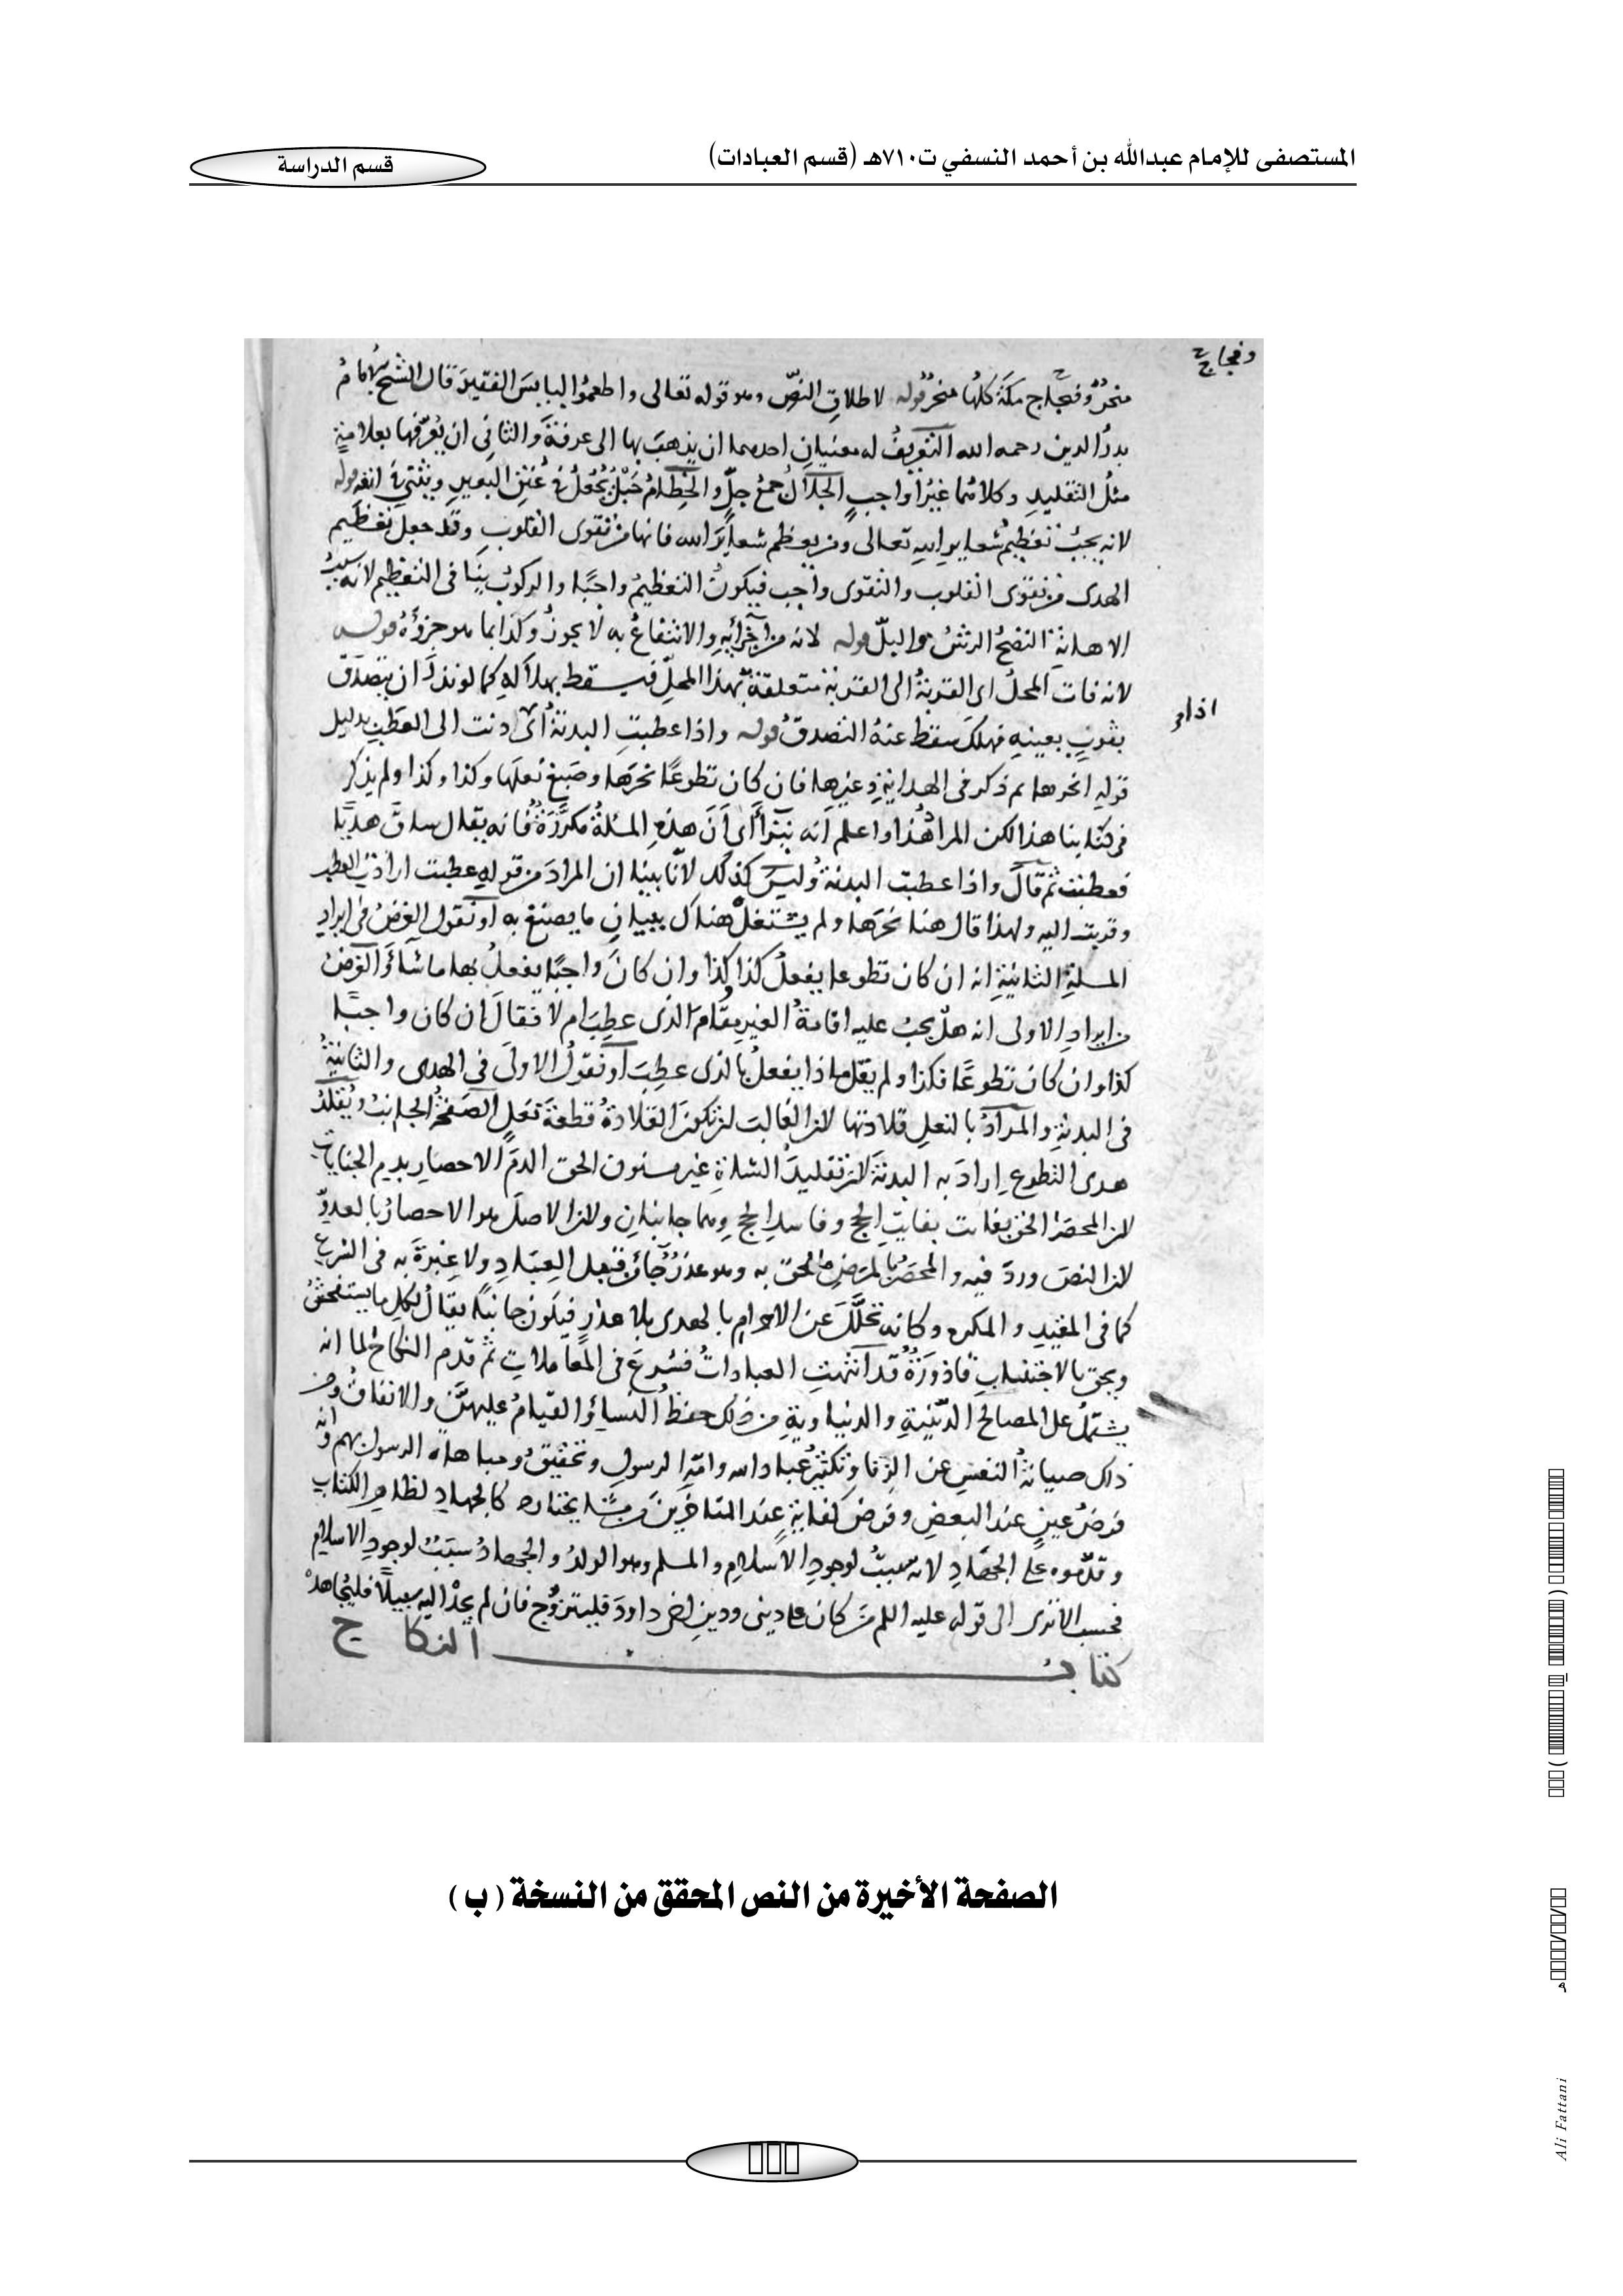 المستصفى للإمام عبدالله بن أحمد النسفي ت٧١٠هـ (قسم العبادات)
قسم الدراسة
وفجاج
منحر وفجاج مكة كلها منحر قوله لاطلاق النص وهو قوله تعالى واطعموا البايس الفقير قال الشيخ الامام
بدر الدين رحمه الله التعريف له معنيان احدهما ان يذهب بها الى عرفة والثاني ان يعرفها بعلامة
مثل التقليد وكلاهما غير واجب الجلال جمع جل والخطام حبل يجعل في عنق البعير ويثنى في انفه قوله
لانه يجب تعظيم شعاير الله تعالى ومن يعظم شعاير الله فانها من تقوى القلوب وقد جعل تعظيم
الهدى من تقوى القلوب والتقوى واجب فيكون التعظيم واجبا والركوب ينافى التعظيم لانه سبب
الاهانة النضح الرش والبل قوله لانه من اجزائه والانتفاع به لا يجوز وكذا بما هو جزؤه قوله
لانه فات المحل اى القربة الى القربة متعلقة بهذا المحل فيسقط بهلاكه كما لو نذر ان يتصدق
اذا
بثوب بعينه فهلك سقط عنه التصدق قوله واذا عطبت البدنة اى دنت الى العطب بدليل
قوله انحرها ثم ذكر فى الهداية وغيرها فان كان تطوعا نحرها وصبغ نعلها وكذا وكذا ولم يذكر
فى كتابنا هذا لكن المراد هذا واعلم انه يتراأى ان هذه المسئلة مكررة فانه يقال ساق هديا
فعطبت ثم قال واذا عطبت البدنة وليس كذلك لانا بينا ان المراد من قوله عطبت اى
وقربت اليه ولهذا قال هنا نحرها ولم يشتغل هناك ببيان ما يصنع به او نقول الغرض فى ايراد
المسلة الثانية انه ان كان تطوعا يفعل كذا كذا وان كان واجبا يفعل بها ما شاء والغرض
من ايراد الاولى انه هل يجب عليه اقامة الغير مقام الذى عطب ام لا فقال ان كان واجبا
كذا وان كان تطوعا فكذا ولم يقل ماذا يفعل بالذى عطب او نقول الاولى فى الهدى والثانية
فى البدنة والمراد بالنعل قلادتها لان الغالب ان تكون القلادة قطعة نعل الصفحة الجانب ويقلد
هدى التطوع اراد به البدنة لان تقليد الشاة غير مسنون الحق الدم الاحصار بدم الجنايات
لان المحصر الحق بفايت الحج وفاسد الحج وهما جانيان ولان الاصل هو الاحصار بالعدو
لان النص ورد فيه والمحصر بالمرض ملحق به وهو عذر جائز قبل العباد ولا عبرة به فى الشرع
كما فى المقيد والمكره وكانه تحلل عن الاحرام بالهدى بلا عذر فيكون جانيا يقال لكل ما يستفحش
ويحق بالاجتناب قاذورة قد انتهت العبادات فشرع فى المعاملات ثم قدم النكاح لما انه
يشتمل على المصالح الدينية والدنياوية من ذلك حفظ النساء والقيام عليهن والانفاق ومن
ذلك صيانة النفس عن الزنا وتكثير عباد الله وامة الرسول وتحقيق مباهاة الرسول بهم وانه
فرض عين عند البعض وفرض كفاية عند المتاخرين من مشايخنا كالجهاد لظاهر الكتاب
وقدموه على الجهاد لانه سبب لوجود الاسلام والمسلم وهو الولد والجهاد سبب لوجود الاسلام
فحسب الا ترى الى قوله عليه السلم من كان على دينى ودين اخى داود فليتزوج فان لم يجد اليه سبيلا فليجاهد
كتاب النكاح
الصفحة الأخيرة من النص المحقق من النسخة ( ب )
Ali Fattani